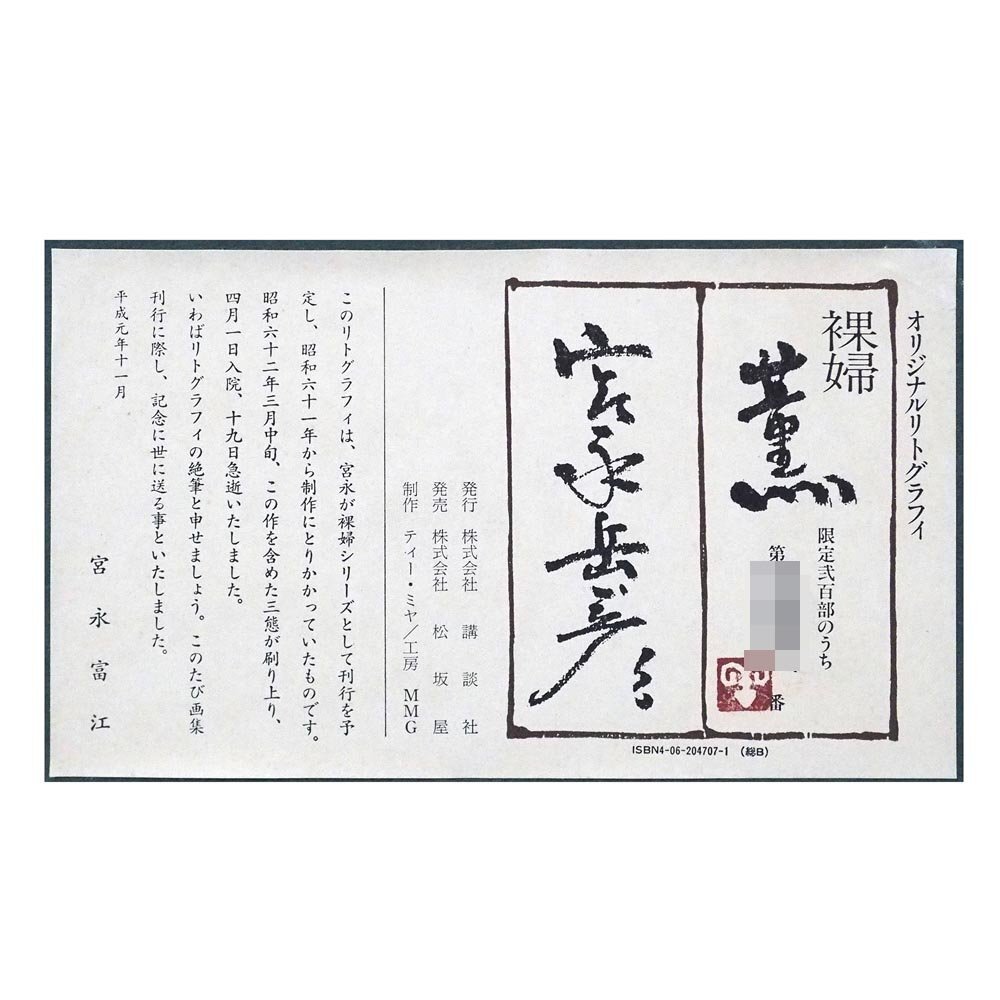 オリジナルリトグラフィ
裸婦
薫
限定弐百部のうち
第
番
宮永岳彦
ISBN4-06-204707-1 (総B)
発行 株式会社 講談社
発売 株式会社 松坂屋
制作 ティー・ミヤ/工房 MMG
このリトグラフィは、宮永が裸婦シリーズとして刊行を予
定し、昭和六十一年から制作にとりかかっていたものです。
昭和六十二年三月中旬、この作を含めた三態が刷り上り、
四月一日入院、十九日急逝いたしました。
いわばリトグラフィの絶筆と申せましょう。このたび画集
刊行に際し、記念に世に送る事といたしました。
平成元年十一月
宮永富江